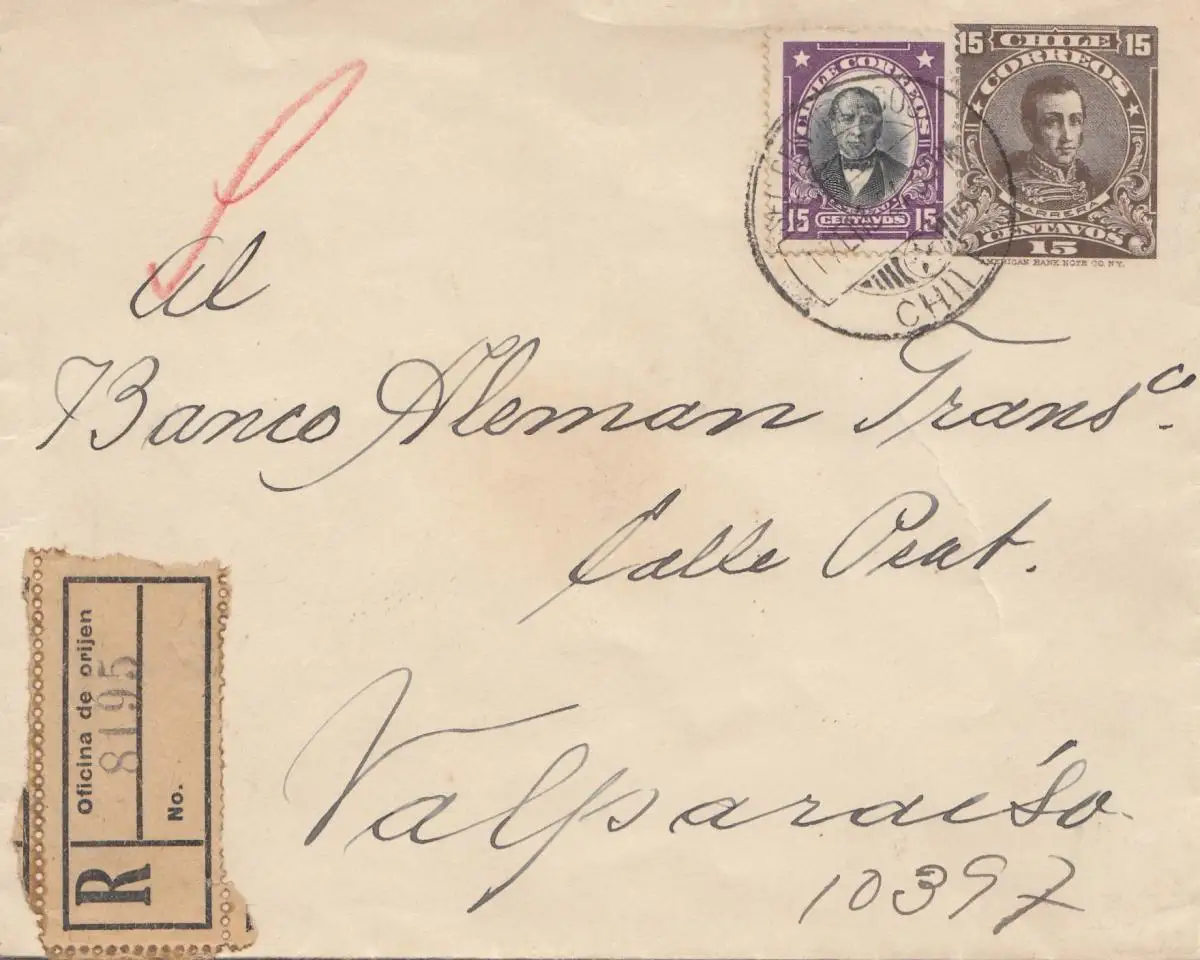 CHILE CORREOS
15 CENTAVOS 15
15 CHILE 15
CORREOS
CARRERA
CENTAVOS
15
AMERICAN BANK NOTE CO. NY.
CHILE
Al
Banco Aleman Transco.
Calle Prat.
Valparaíso
10397
Oficina de orijen
8195
No.
R